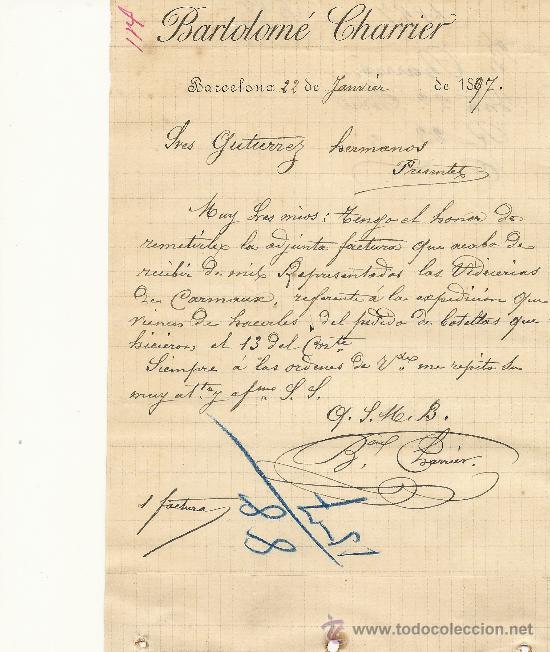 Bartolomé Charrier
Barcelona 22 de Janvier de 1897.
Sres Gutierrez hermanos
Presentes
Muy Sres mios: Tengo el honor de
remetirles la adjunta factura que acabo de
recibir de mis Representados las Vidrierias
de Carmaux, referente á la expedicion que
vienen de hacerles, del pedido de botellas que
hicieron el 13 del Cor.te
Siempre á las ordenes de V.des me repito su
muy at.to y af.mo S. S.
Q. S. M. B.
B.mé Charrier.
1 factura
88
www.todocoleccion.net